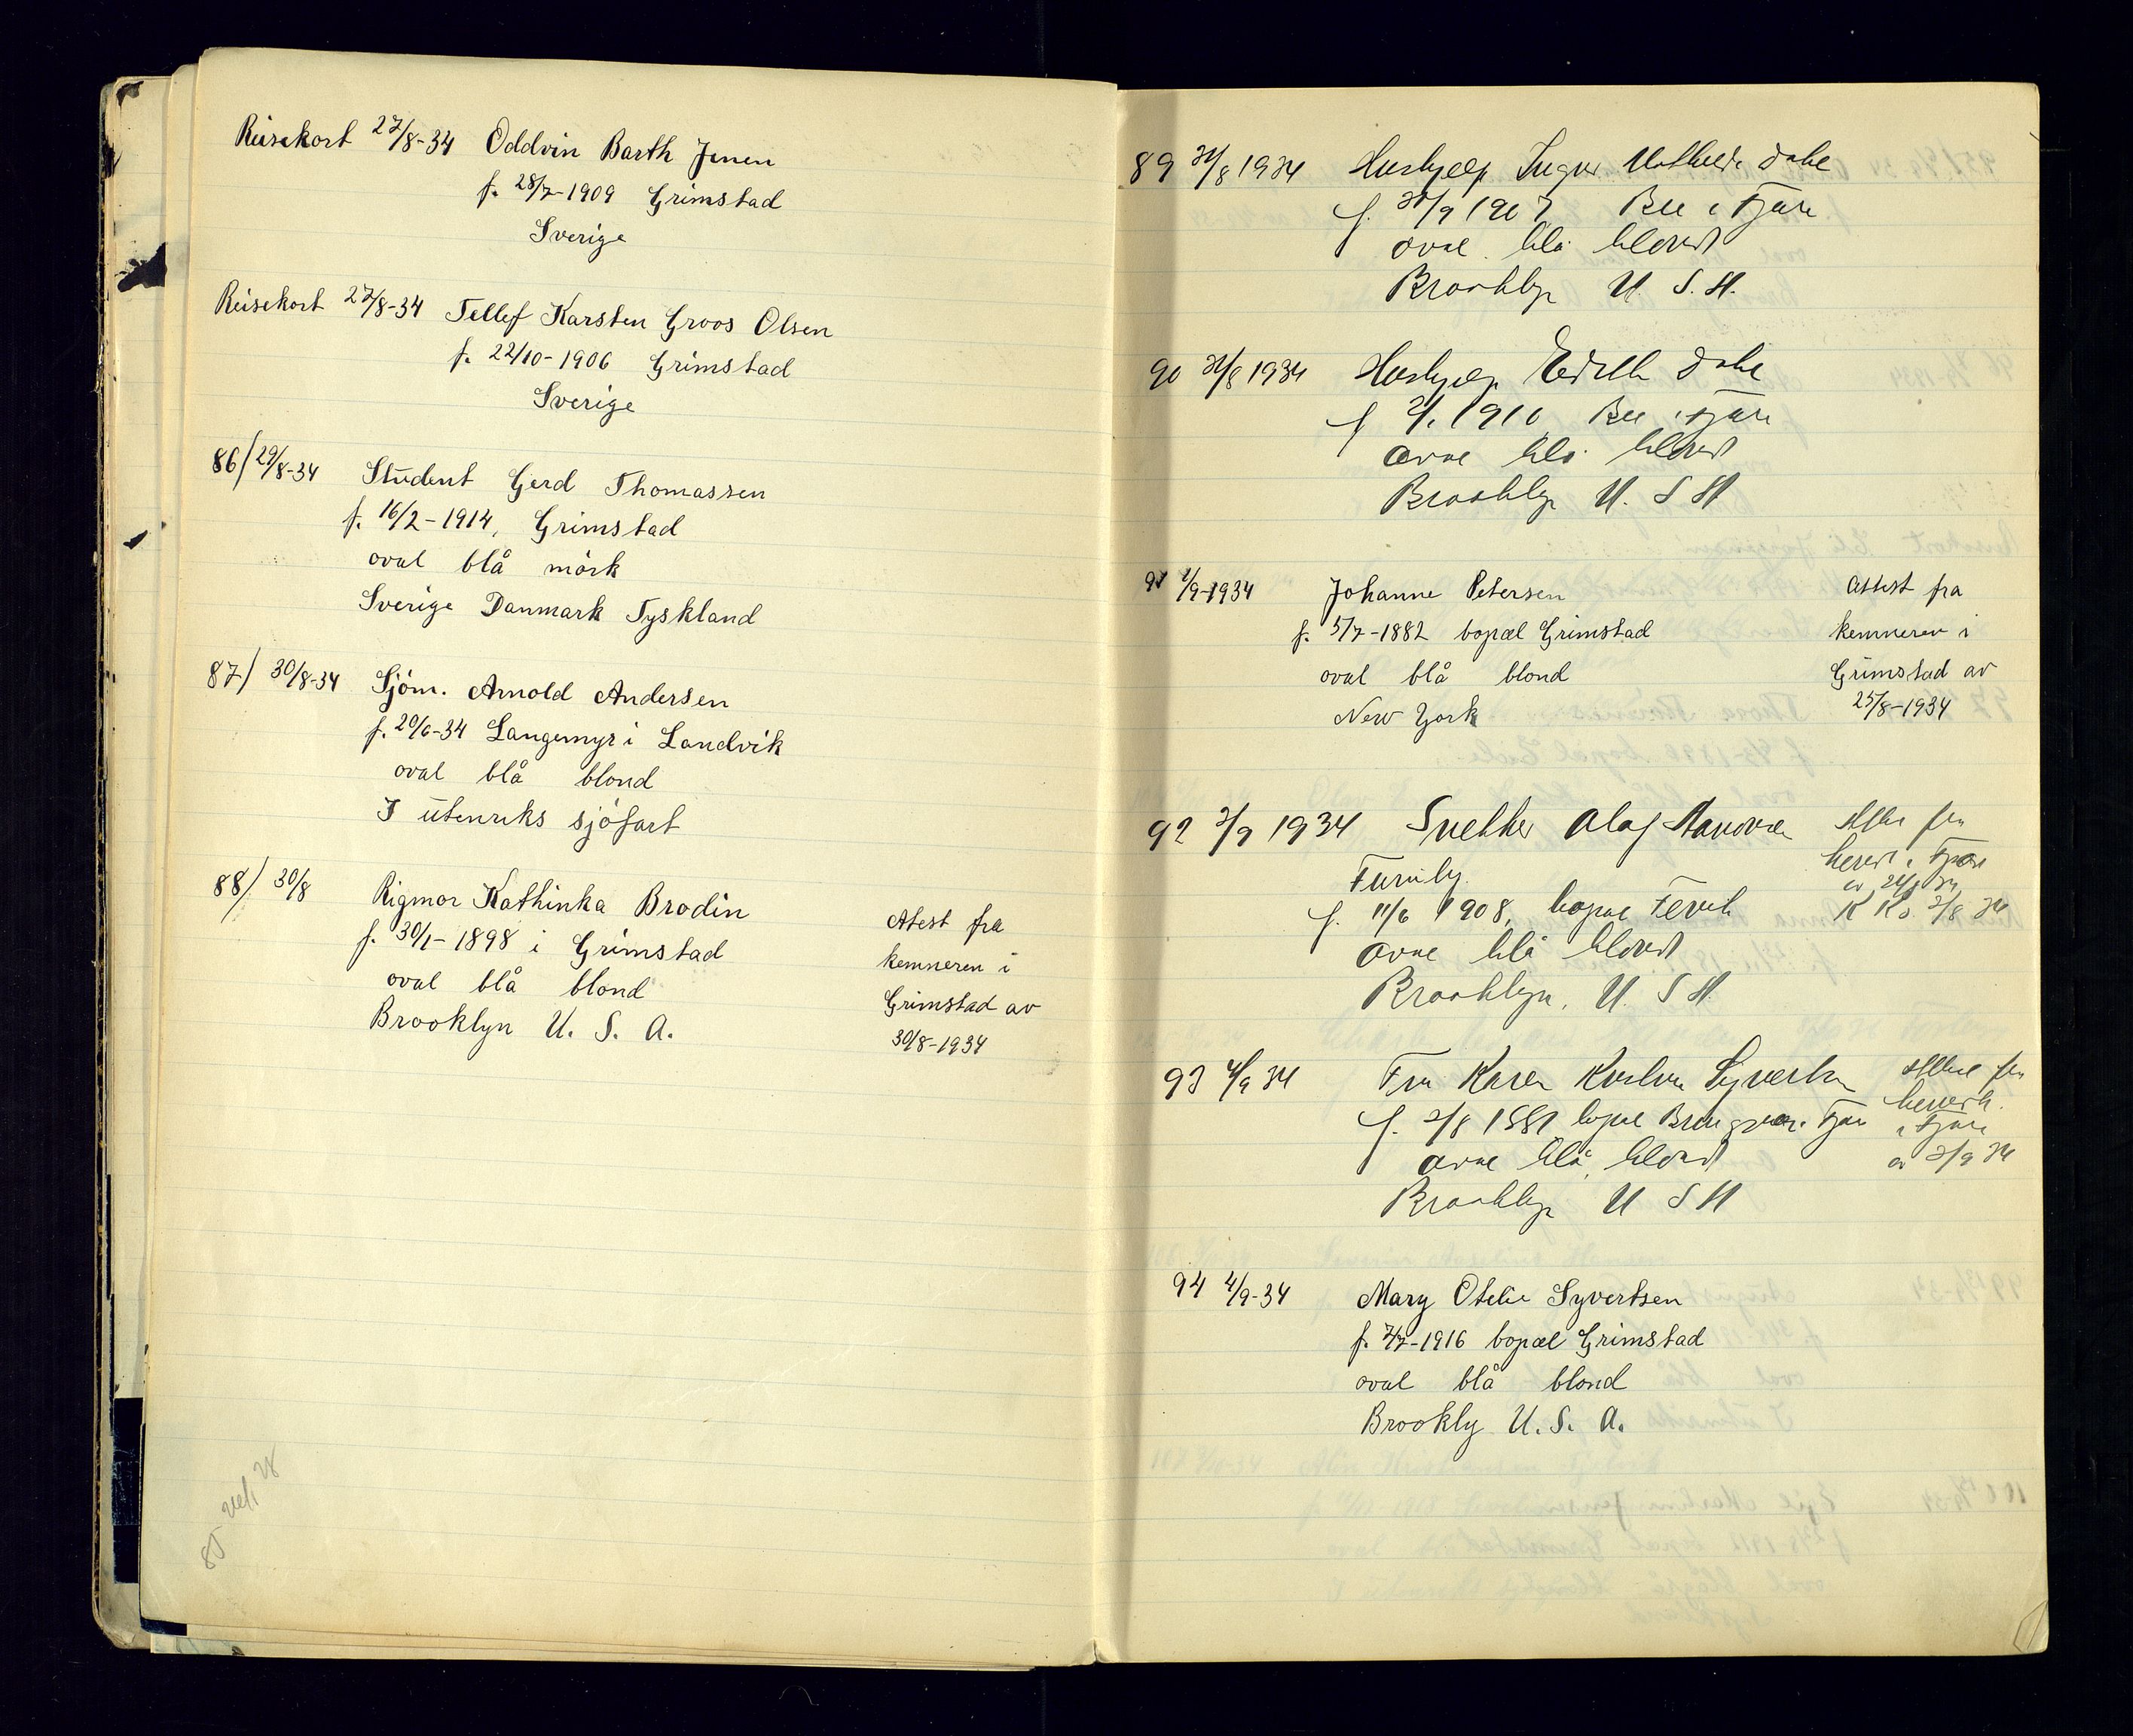 Reisekort 27/8-34 Oddvin Barth Jensen
f. 28/7-1909 Grimstad
Sverige
Reisekort 27/8-34 Tellef Karsten Groos Olsen
f. 22/10-1906 Grimstad
Sverige
86/ 29/8-34 Student Gerd Thomassen
f. 16/2-1914, Grimstad
oval blå mörk
Sverige Danmark Tyskland
87/ 30/8-34 Sjöm. Arnold Andersen
f. 20/6-34 Langemyr i Landvik
oval blå blond
I utenriks sjöfart
88/ 30/8 Rigmor Kathinka Brodin
f. 30/1-1898 i Grimstad
oval blå blond
Brooklyn U. S. A.
Atest fra
kemneren i
Grimstad av
30/8-1934
89 31/8 1934 Hushjelp
Bie i Fjære
oval blå blond
Brooklyn U. S. A.
90 31/8 1934 Hushjelp Edith
f 1910 Bie i Fjære
oval blå blond
Brooklyn U. S A
91 1/9-1934 Johanne Petersen
f. 5/7-1882 bopæl Grimstad
oval blå blond
New York
Attest fra
kemneren i
Grimstad av
25/8-1934
92 3/9 1934 Snekker Olaf
f. 11/6 1908, bopæl Fevik
oval blå blond
Brooklyn, U. S A.
93 4/9 34 Fru Karen Syvertsen
f. 2/8 1881 bopæl
oval blå, blond
Brooklyn U S A
i Fjære
av 3/9 34
94 4/9-34 Mary Otelie Syvertsen
f. 7/7-1916 bopæl Grimstad
oval blå blond
Brookly U. S. A.